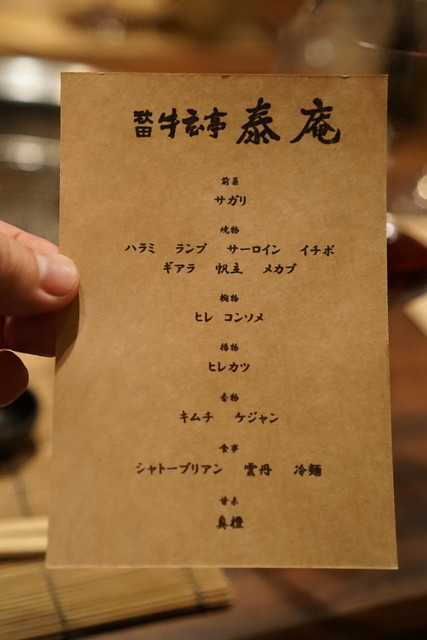 秋田 牛玄亭 泰庵
前菜
サガリ
焼物
ハラミ ランプ サーロイン イチボ
ギアラ 帆立 メカブ
椀物
ヒレ コンソメ
揚物
ヒレカツ
香物
キムチ ケジャン
食事
シャトーブリアン 雲丹 冷麺
甘味